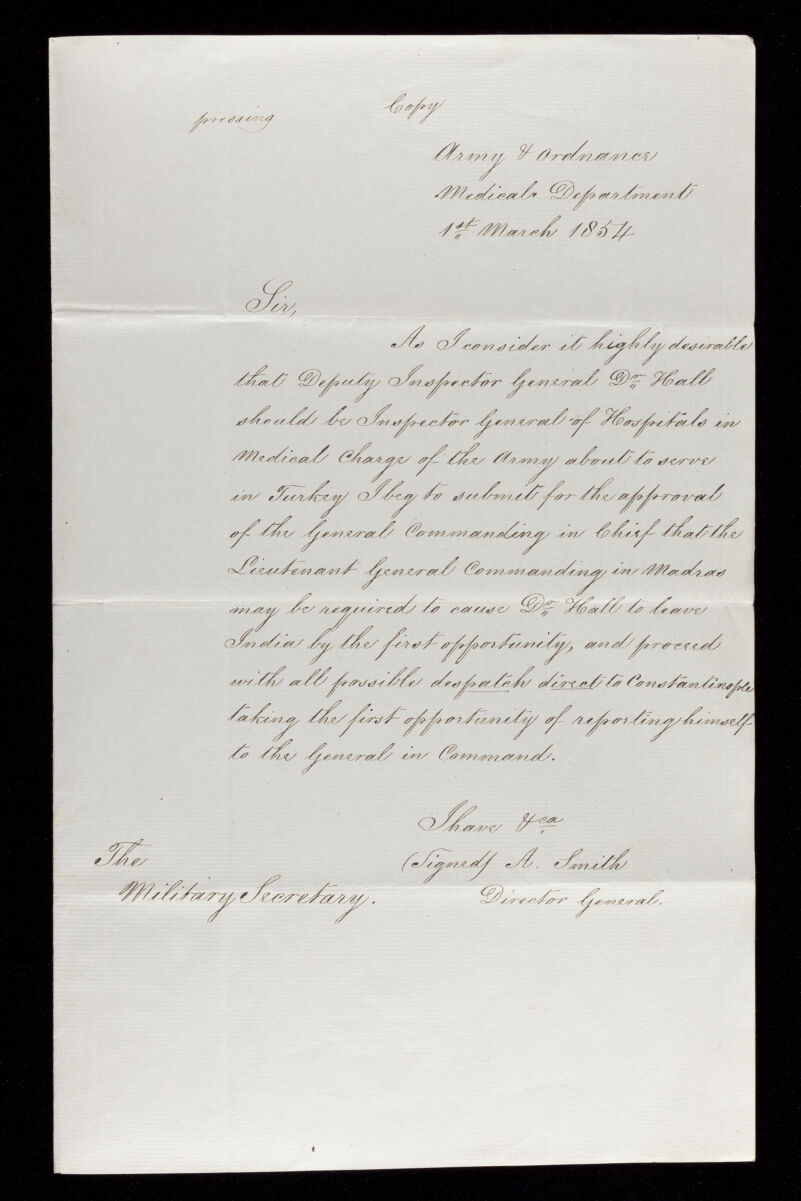 pressing
Copy
Army & Ordnance
Medical Department
1st March 1854
Sir,
As I consider it highly desirable
that Deputy Inspector General Dr Hall
should be Inspector General of Hospitals in
Medical Charge of the Army about to serve
in Turkey I beg to submit for the approval
of the General Commanding in Chief that the
Lieutenant General Commanding in Madras
may be required to cause Dr Hall to leave
India by the first opportunity, and proceed
with all possible despatch direct to Constantinople
taking the first opportunity of reporting himself
to the General in Command.
I have &ca
(Signed) A. Smith
Director General.
The
Military Secretary.